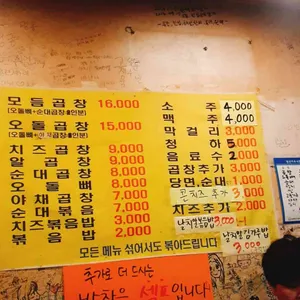 모듬곱창 16.000
(오돌뼈+순대곱창2인분)
오돌곱창 15,000
치즈곱창 9,000
알곱창 9,000
순대곱창 8,000
오돌뼈 8,000
야채곱창 7,000
순대볶음 7,000
치즈볶음밥 3,000
볶음밥 2,000
소주 4,000
맥주 4,000
막걸리 3,000
청하 5,000
음료수 2,000
곱창추가
당면,순대
콘치즈 추가
치즈추가 2,000
날치알볶음밥 3,000
날치알김가루밥
3,000
모든 메뉴 섞어서도 볶아드립니다
추가로 더 드시는
반찬은 셀프입니다